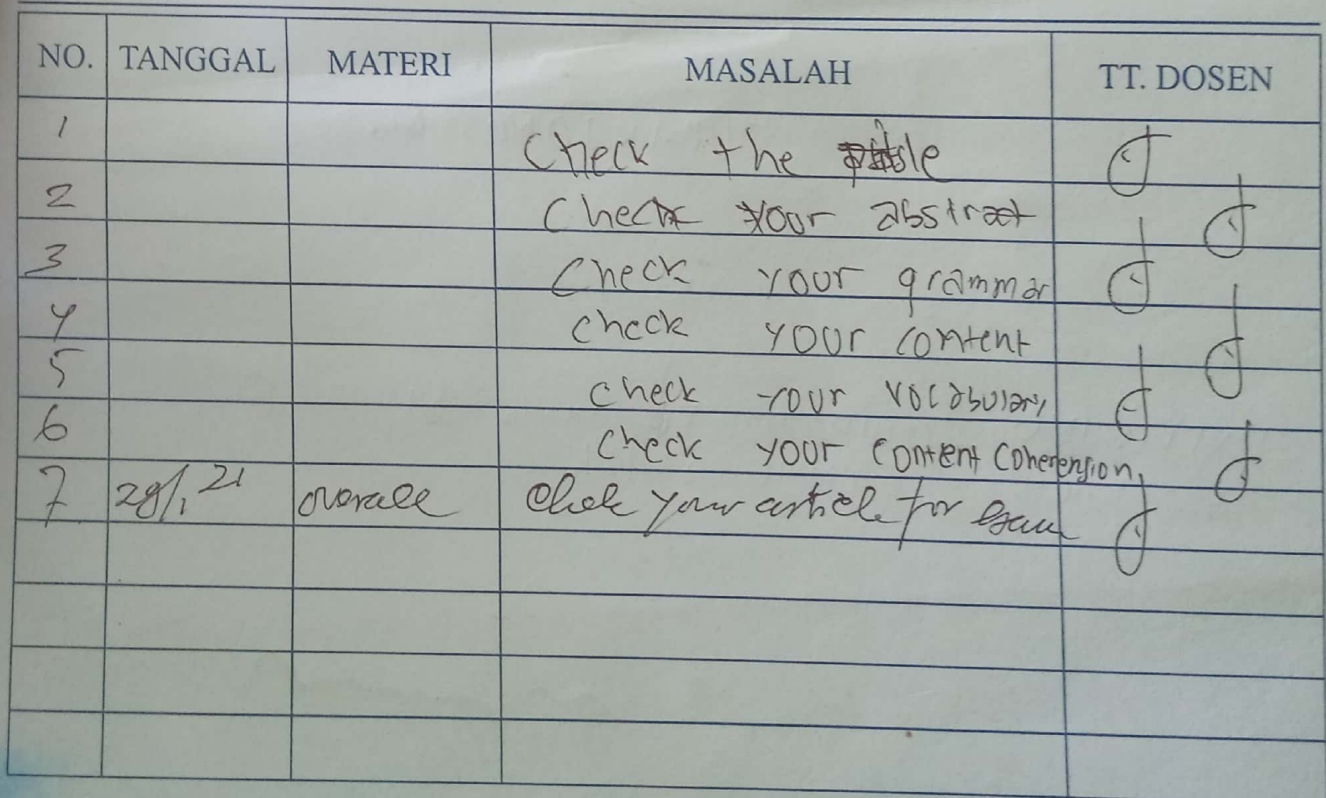 NO. TANGGAL MATERI MASALAH TT. DOSEN
1 Check the
2 Check your abstract
3 Check your grammar
4 check your content
5 check your vocabulary
6 check your content coherension
7 28/1 21 overall Chek your article for exam